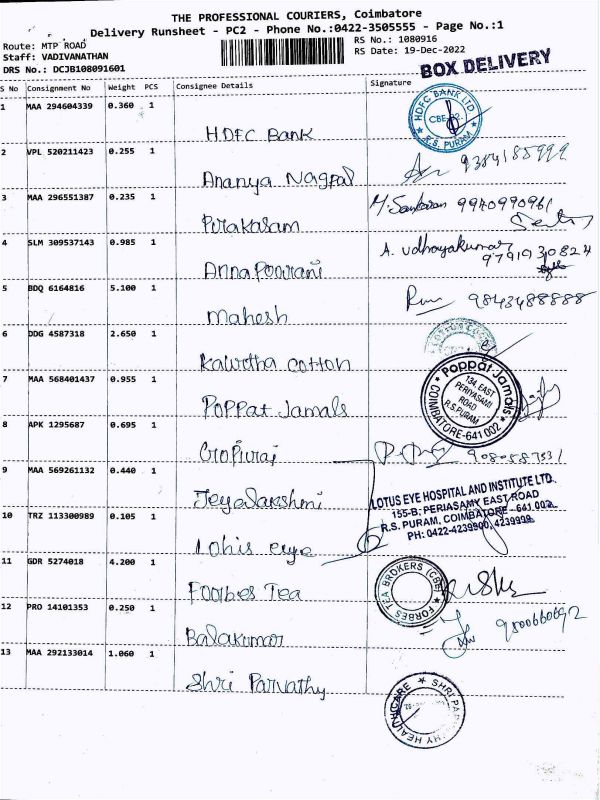 THE PROFESSIONAL COURIERS, Coimbatore
Delivery Runsheet - PC2 - Phone No.:0422-3505555 - Page No.:1
Route: MTP ROAD
Staff: VADIVANATHAN
DRS No.: DCJB108091601
RS No.: 1080916
RS Date: 19-Dec-2022
BOX DELIVERY
S No Consignment No Weight PCS Consignee Details Signature
1 MAA 294604339 0.360 1
HDFC Bank
HDFC BANK LTD
CBE-02
R.S. PURAM
2 VPL 520211423 0.255 1
Ananya Nagpal
9384185999
3 MAA 296551387 0.235 1
Pirakasam
M. Sankaran 9940990961
4 SLM 309537143 0.985 1
Anna Poorani
A. Udhayakumar
9791930824
5 BDQ 6164816 5.100 1
Mahesh
9843488888
6 DDG 4587318 2.650 1
Kalpetha cotton
7 MAA 568401437 0.955 1
Poppat Jamals
Poppat Jamals
134, EAST
PERIYASAMI
ROAD
R.S.PURAM
COIMBATORE-641 002
8 APK 1295687 0.695 1
Gopiraj
9 MAA 569261132 0.440 1
Jeyalakshmi
LOTUS EYE HOSPITAL AND INSTITUTE LTD.
155-B, PERIASAMY EAST ROAD
R.S. PURAM, COIMBATORE - 641 002.
PH: 0422-4239900, 4239999
10 TRZ 113300989 0.105 1
Lotus eye
11 GDR 5274018 4.200 1
Foorbes Tea
FORBES TEA BROKERS (CBE)
12 PRO 14101353 0.250 1
Balakumar
9500660692
13 MAA 292133014 1.060 1
Shri Parvathy
SHRI PARVATHY HEALTHCARE